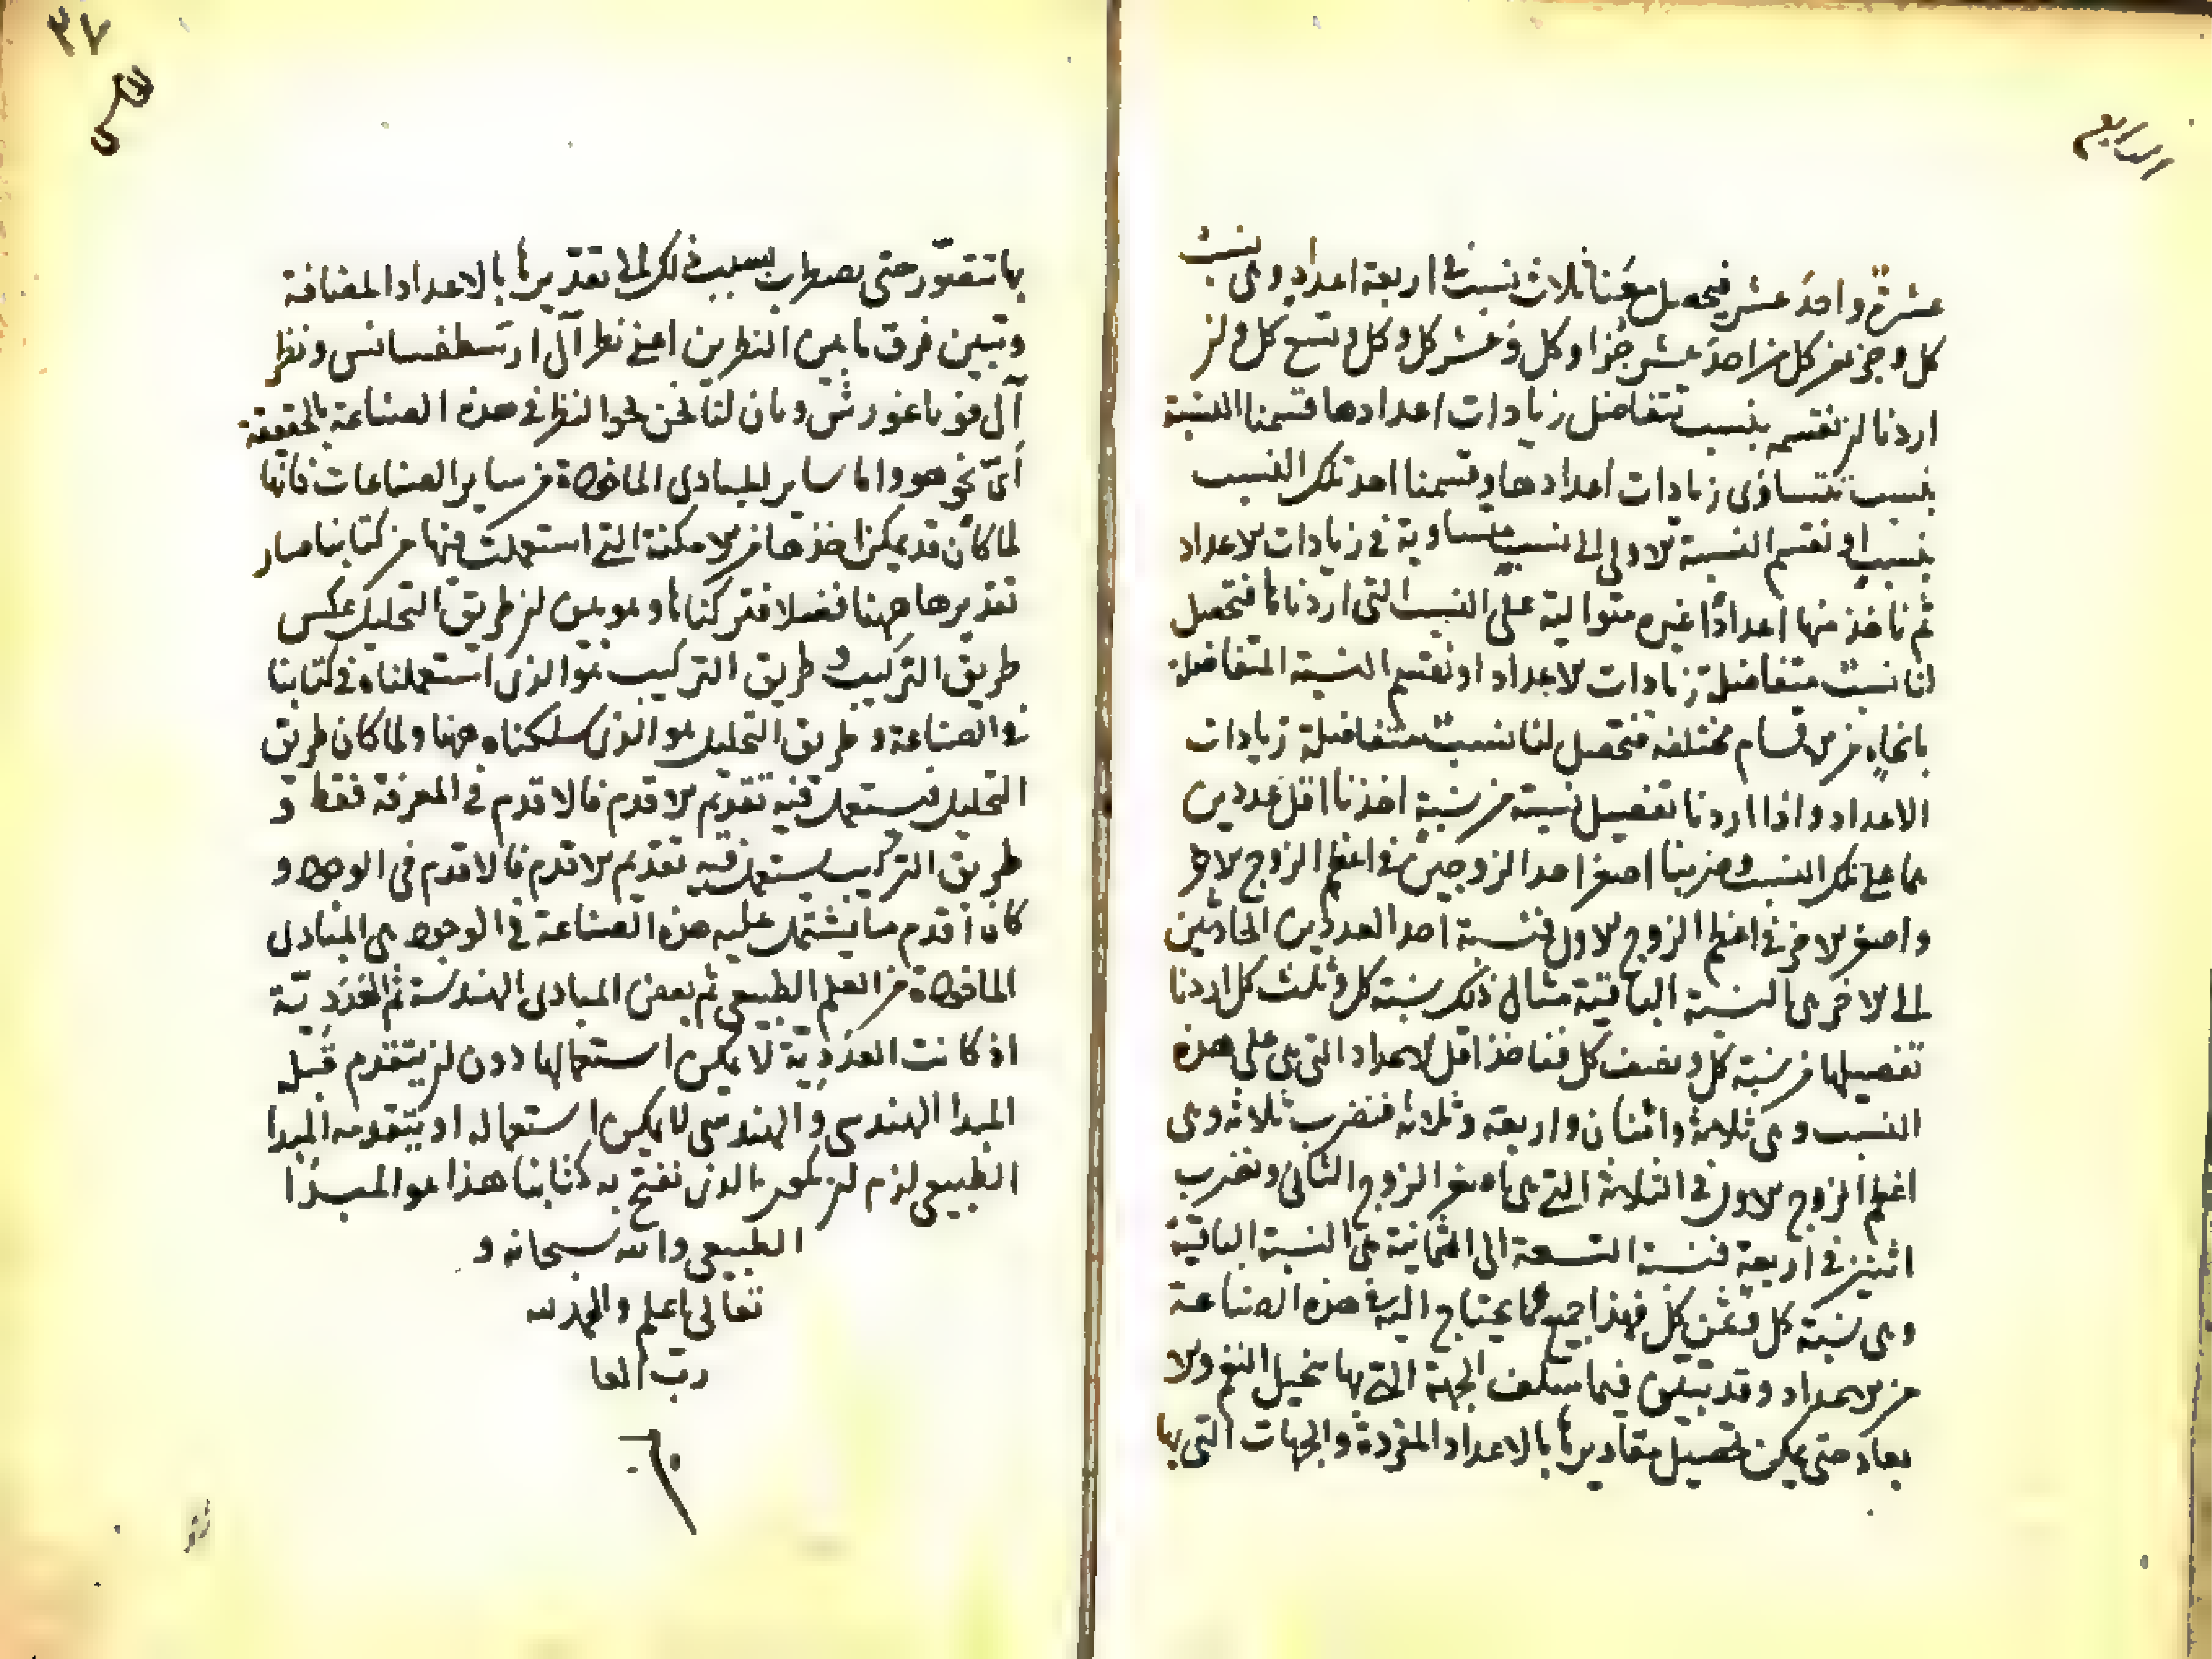 الرابع
عشرة واحد عشر فيحصل معنا ثلاث نسب في اربعة اعداد وهي نسب
كل وجزء من كل من احد عشر جزا وكل وعشر كل وكل وتسع كل وان
اردنا ان نقسم بنسب تتفاضل زيادات اعدادها قسمنا النسبة
بنسب تتساوى زيادات اعدادها وقسمنا احد تلك النسب
بنسب او نقسم النسبة الاولى الى نسب متساوية في زيادات الاعداد
ثم ناخذ منها اعدادا غيره متوالية على النسب التي اردناها فتحصل
لنا نسب متفاضلة زيادات الاعداد او نقسم النسبة المتفاضلة
بانحاء من الاقسام مختلفة فتحصل لنا نسب متفاضلة زيادات
الاعداد واذا اردنا تفصيل نسبة من نسبة اخذنا اقل عددين
هما على تلك النسب وضربنا اصغر احد الزوجين في اعظم الزوج الاخر
واصغر الاخر في اعظم الزوج الاول فنسبة احد العددين الحادثين
الى الاخر هي النسبة الباقية مثال ذلك نسبة كل وثلث كل اردنا
تفصيلها من نسبة كل ونصف كل فناخذ اقل الاعداد التي هي على هذه
النسب وهي ثلاثة واثنان واربعة وثلاثة فنضرب ثلاثة وهي
اعظم الزوج الاول في الثلاثة التي هي اصغر الزوج الثاني ونضرب
اثنين في اربعة فنسبة التسعة الى الثمانية هي النسبة الباقية
وهي نسبة كل وثمن كل فهذا جميع ما يحتاج اليه في هذه الصناعة
من الاعداد وقد تبين فيما سلف الجهة التي بها تخيل النغم والا
بعاد حتى يمكن تحصيل مقاديرها بالاعداد المفردة والجهات التي بها
٣٧
بها تتصور حتى يضطر بسبب ذلك الى تقديرها بالاعداد المضافة
وتبين فرق ما بين النظرين اعني نظر آل ارسطفسانس ونظر
آل فوثاغورش وبان لنا نحن نحو النظر في هذه الصناعة بالحقيقة
اي نحو هو واما ساير المبادي الماخوذة من ساير الصناعات فانها
لما كان قد يمكن اخذها من الامكنة التي استعملت فيها من كتابنا صار
تقديرها ههنا فضلا فتركناها وهو بين ان طريق التحليل عكس
طريق التركيب وطريق التركيب هو الذي استعملناه في كتابنا
في الصناعة وطريق التحليل هو الذي سلكناه ههنا ولما كان طريق
التحليل فيستعمل فيه تقديم الاقدم فالاقدم في المعرفة فقط و
طريق التركيب يستعمل فيه تقديم الاقدم فالاقدم في الوجود و
كان اقدم ما يشتمل عليه هذه الصناعة في الوجود هي المبادي
الماخوذة من العلم الطبيعي ثم بعض المبادي الهندسة ثم العددية
اذ كانت العددية لا يمكن استعمالها دون ان يتقدم قبله
المبدا الهندسي والهندسي لا يمكن استعماله او يتقدمه المبدا
الطبيعي لزم ان يكون الذي نفتح به كتابنا هذا هو المبدا
الطبيعي والله سبحانه و
تعالى اعلم والحمد لله
رب العا